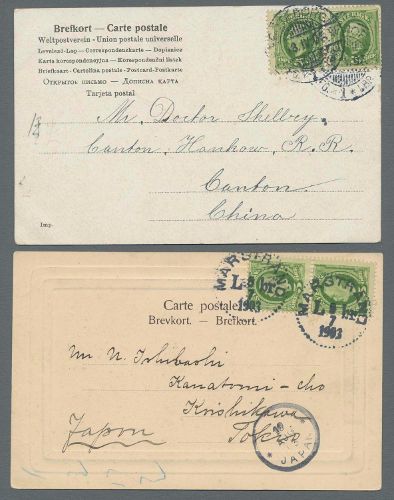 Brefkort — Carte postale
Weltpostverein - Union postale universelle
Levelezö-Lap — Correspondenzkarte — Dopisnice
Karta korespondencyjna — Korespondenční lístek
Briefkaart - Cartolina postale - Postcard - Postkarte
Открытое письмо — Дописна карта
Tarjeta postal
Mr. Doctor Shelbey.
Canton Hankow R. R.
Canton
China
Imp.
MARSTRAND
1903
MARSTRAND
7
1903
Carte postale
Brevkort. — Brefkort.
N. Ishibashi
Kanatomi-cho
Koishikawa
Tokio
Japon
JAPAN